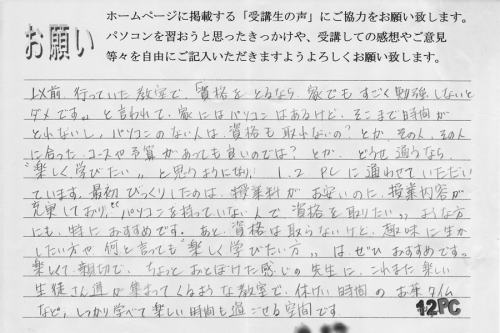 お願い
ホームページに掲載する「受講生の声」にご協力をお願い致します。
パソコンを習おうと思ったきっかけや、受講しての感想やご意見
等々を自由にご記入いただきますようよろしくお願い致します。
以前、行っていた教室で、「資格をとるなら、家でもすごく勉強しないと
ダメです。」と言われて、家にはパソコンはあるけど、そこまで時間が
とれないし、パソコンのない人は資格も取れないの？とか、その人、その人
に合った、コースや予算があっても良いのでは？とか、どうせ通うなら
"楽しく学びたい"と思うようになり、1.2.PCに通わせていただい
ています。最初びっくりしたのは、授業料がお安いのに、授業内容が
充実しており、"パソコンを持っていない人で、資格を取りたい"ような方
にも、特におすすめです。あと、資格は取らないけど、趣味に生か
したい方や何と言っても"楽しく学びたい方"は、ぜひおすすめです。
楽しくて、親切で、ちょっとおとぼけた感じの先生に、これまた楽しい
生徒さん達が集まってくるような教室で、休けい時間のお茶タイム
など、しっかり学べて楽しい時間も過ごせる空間です。
12PC